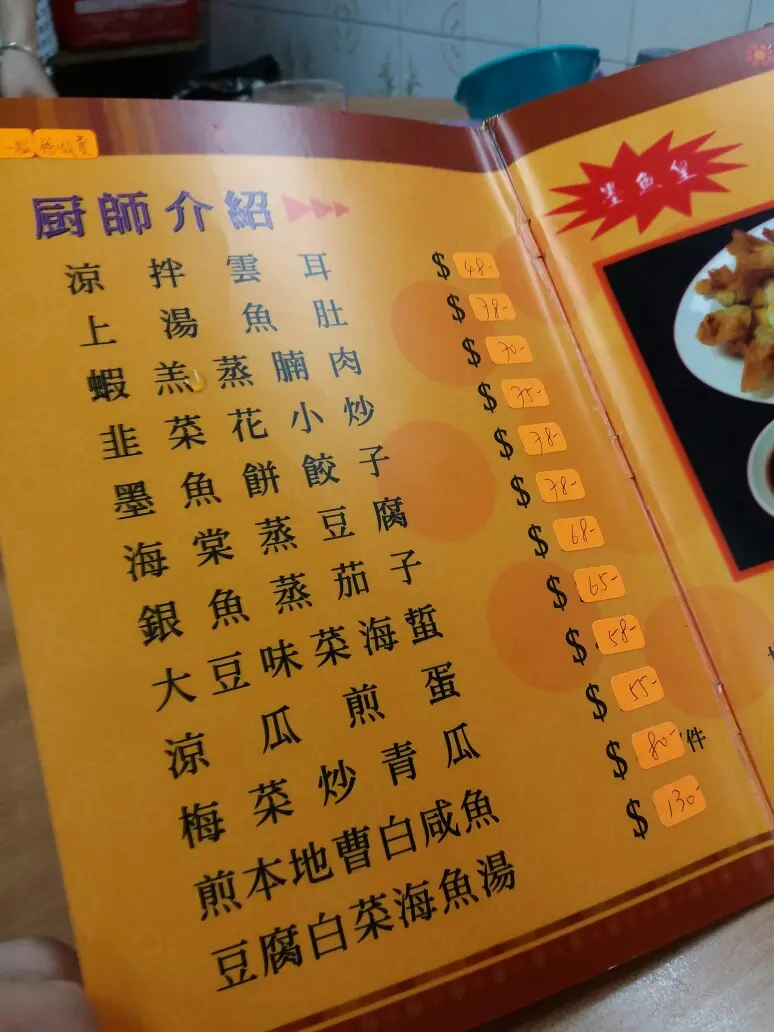 厨師介紹
涼拌雲耳 $48-
上湯魚肚 $78-
蝦羔蒸腩肉 $70-
韭菜花小炒 $75-
墨魚餅餃子 $78-
海棠蒸豆腐 $78-
銀魚蒸茄子 $68-
大豆味菜海蜇 $65-
涼瓜煎蛋 $58-
梅菜炒青瓜 $55-
煎本地曹白咸魚 $80-件
豆腐白菜海魚湯 $130-
墨魚皇